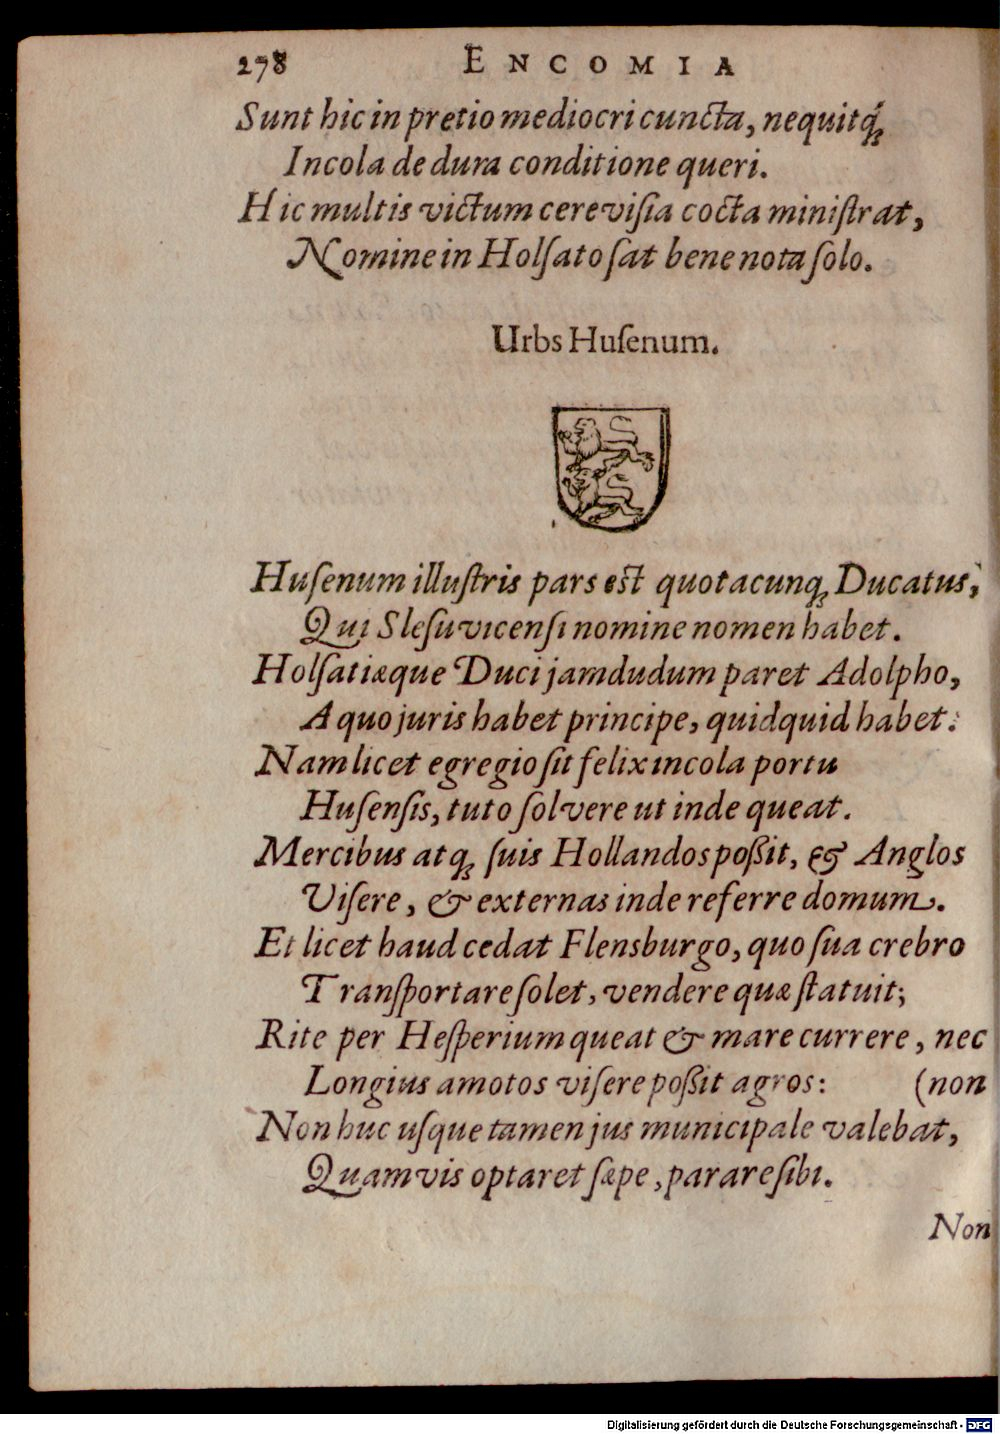 278 ENCOMIA
Sunt hic in pretio mediocri cuncta, nequitq́ꝫ
Incola de dura conditione queri.
Hic multis victum cereviſia cocta miniſtrat,
Nomine in Holſato ſat bene nota ſolo.
Urbs Huſenum.
Huſenum illuſtris pars est quotacunqꝫ Ducatus,
Qui Sleſuvicenſi nomine nomen habet.
Holſatiæque Duci jamdudum paret Adolpho,
A quo juris habet principe, quidquid habet.
Nam licet egregio ſit felix incola portu
Huſenſis, tuto ſolvere ut inde queat.
Mercibus atqꝫ ſuis Hollandos poßit, & Anglos
Viſere, & externas inde referre domum.
Et licet haud cedat Flensburgo, quo ſua crebro
Tranſportare ſolet, vendere quæ ſtatuit;
Rite per Heſperium queat & mare currere, nec
Longius amotos viſere poßit agros: (non
Non huc uſque tamen jus municipale valebat,
Quamvis optaret ſæpe, parare ſibi.
Non
Digitalisierung gefördert durch die Deutsche Forschungsgemeinschaft - DFG